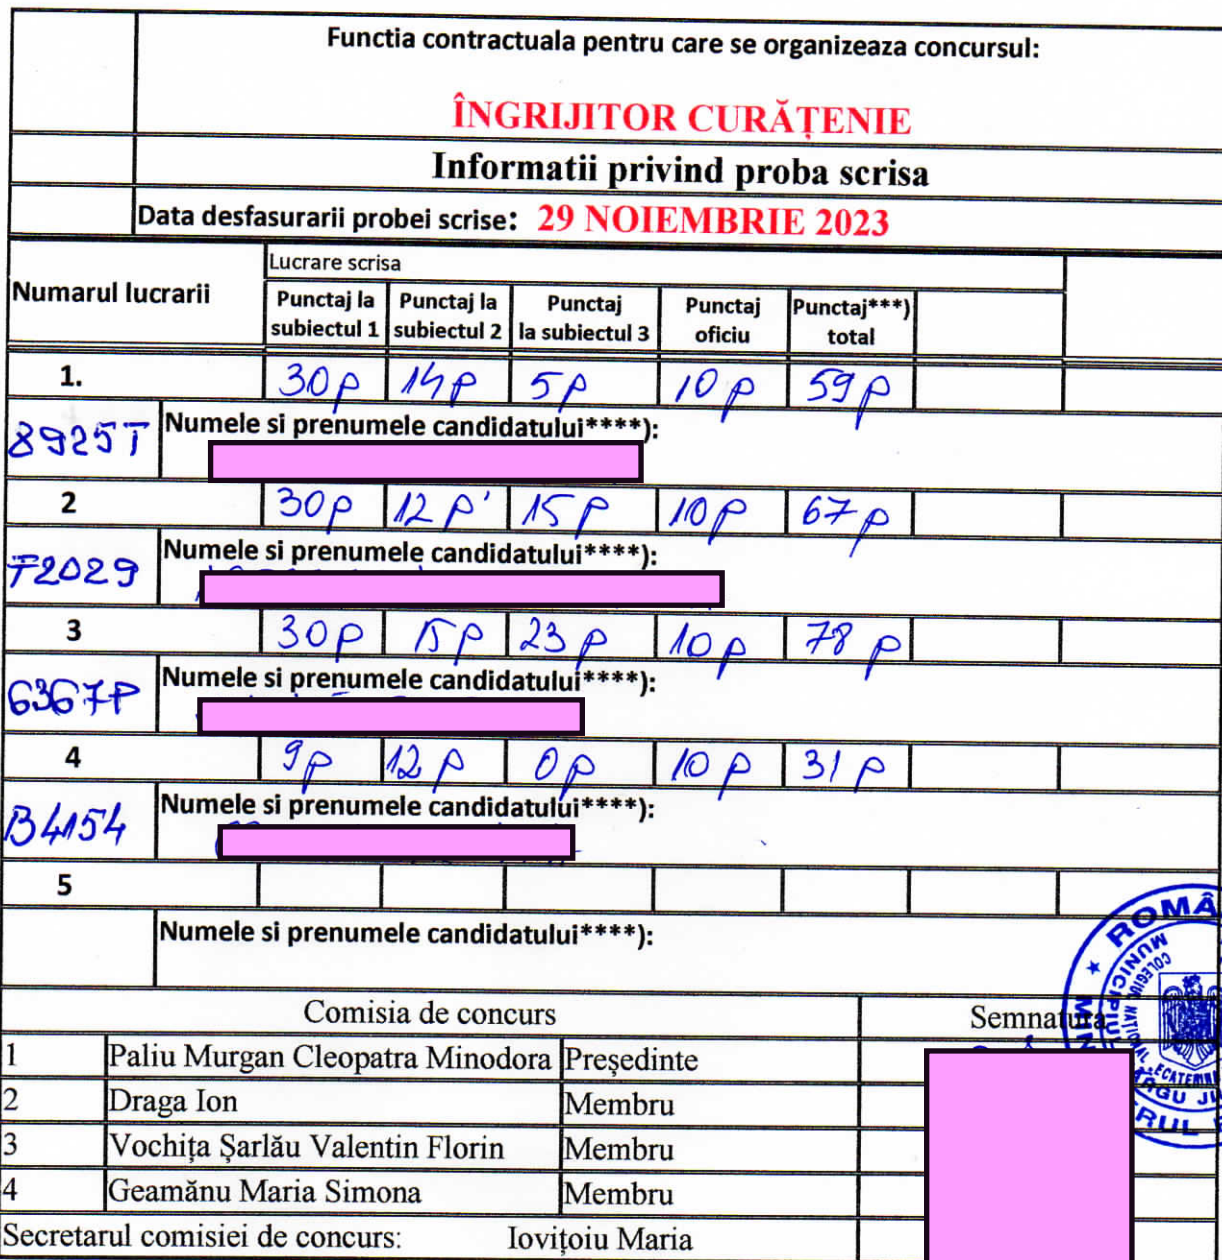 Functia contractuala pentru care se organizeaza concursul:
ÎNGRIJITOR CURĂȚENIE
Informatii privind proba scrisa
Data desfasurarii probei scrise: 29 NOIEMBRIE 2023
Numarul lucrarii
Lucrare scrisa
Punctaj la subiectul 1 Punctaj la subiectul 2 Punctaj la subiectul 3 Punctaj oficiu Punctaj***) total
1. 30p 14p 5p 10p 59p
8925T Numele si prenumele candidatului****):
2 30p 12p 15p 10p 67p
T2029 Numele si prenumele candidatului****):
3 30p 15p 23p 10p 78p
6367P Numele si prenumele candidatului****):
4 9p 12p 0p 10p 31p
B4154 Numele si prenumele candidatului****):
5
Numele si prenumele candidatului****):
Comisia de concurs Semnatura
1 Paliu Murgan Cleopatra Minodora Președinte
2 Draga Ion Membru
3 Vochița Șarlău Valentin Florin Membru
4 Geamănu Maria Simona Membru
Secretarul comisiei de concurs: Iovițoiu Maria
ROMÂ
MUNICIPIUL
COLEGIUL NAȚIONAL